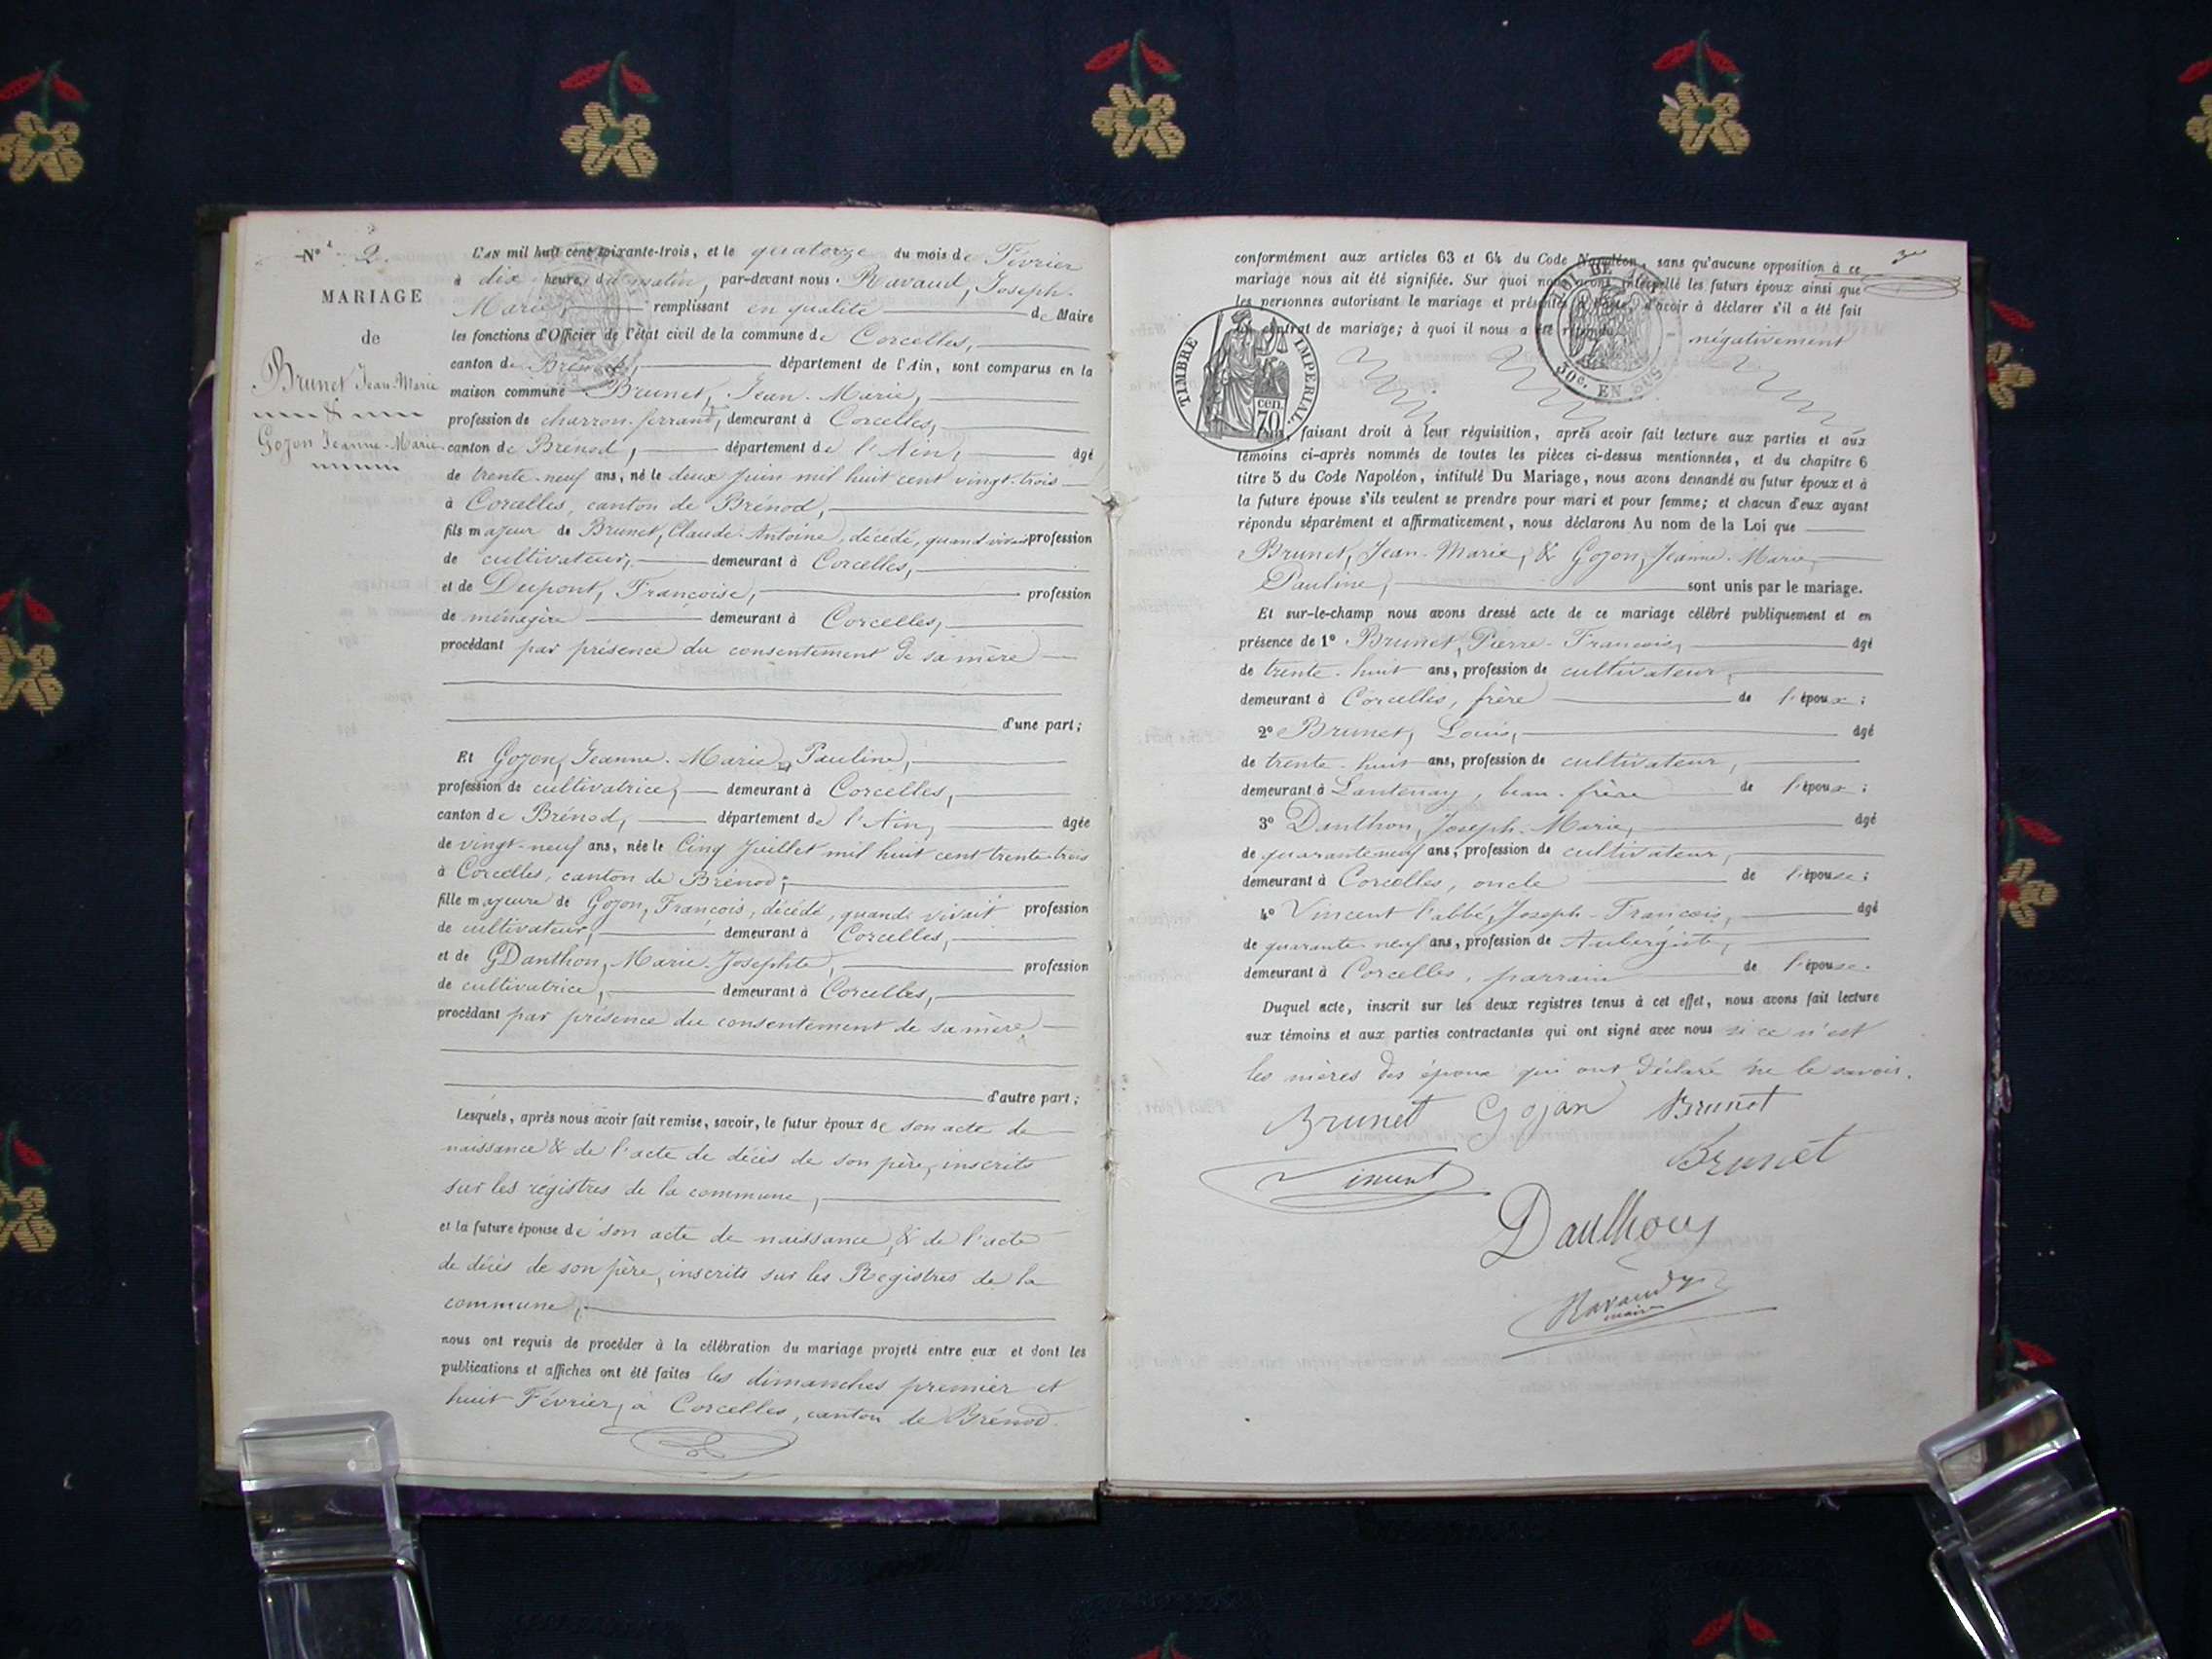 N° 2.
MARIAGE
de
Brunet Jean-Marie
&
Gozon Jeanne-Marie
L'AN mil huit cent soixante-trois, et le quatorze du mois de Février
à dix heures du matin, par-devant nous Ravaud, Joseph-
Marie, remplissant en qualité de Maire
les fonctions d'Officier de l'état civil de la commune de Corcelles,
canton de Brénod, département de l'Ain, sont comparus en la
maison commune Brunet, Jean-Marie,
profession de charron-ferrant, demeurant à Corcelles,
canton de Brénod, département de l'Ain, âgé
de trente-neuf ans, né le deux Juin mil huit cent vingt-trois
à Corcelles, canton de Brénod,
fils majeur de Brunet, Claude-Antoine, décédé, quand vivait profession
de cultivateur, demeurant à Corcelles,
et de Dupont, Françoise, profession
de ménagère demeurant à Corcelles,
procédant par présence du consentement de sa mère
d'une part;
Et Gozon, Jeanne-Marie Pauline,
profession de cultivatrice, demeurant à Corcelles,
canton de Brénod, département de l'Ain, âgée
de vingt-neuf ans, née le Cinq Juillet mil huit cent trente-trois
à Corcelles, canton de Brénod;
fille majeure de Gozon, François, décédé, quand vivait profession
de cultivateur, demeurant à Corcelles,
et de Danthon, Marie-Josephte, profession
de cultivatrice, demeurant à Corcelles,
procédant par présence du consentement de sa mère
d'autre part;
Lesquels, après nous avoir fait remise, savoir, le futur époux de son acte de
naissance & de l'acte de décès de son père, inscrits
sur les régistres de la commune,
et la future épouse de son acte de naissance, & de l'acte
de décès de son père, inscrits sur les Registres de la
commune,
nous ont requis de procéder à la célébration du mariage projeté entre eux et dont les
publications et affiches ont été faites les dimanches premier et
huit Février, à Corcelles, canton de Brénod.
conformément aux articles 63 et 64 du Code Napoléon, sans qu'aucune opposition à ce
mariage nous ait été signifiée. Sur quoi nous avons interpellé les futurs époux ainsi que
les personnes autorisant le mariage et présentes à l'acte, d'avoir à déclarer s'il a été fait
un contrat de mariage; à quoi il nous a été répondu négativement
TIMBRE IMPERIAL.
70 cen.
50c. EN SUS
Puis, faisant droit à leur réquisition, après avoir fait lecture aux parties et aux
témoins ci-après nommés de toutes les pièces ci-dessus mentionnées, et du chapitre 6
titre 5 du Code Napoléon, intitulé Du Mariage, nous avons demandé au futur époux et à
la future épouse s'ils veulent se prendre pour mari et pour femme; et chacun d'eux ayant
répondu séparément et affirmativement, nous déclarons Au nom de la Loi que
Brunet, Jean-Marie, & Gozon, Jeanne-Marie
Pauline, sont unis par le mariage.
Et sur-le-champ nous avons dressé acte de ce mariage célébré publiquement et en
présence de 1° Brunet, Pierre-François, âgé
de trente-huit ans, profession de cultivateur,
demeurant à Corcelles, frère de l'époux;
2° Brunet, Louis, âgé
de trente-huit ans, profession de cultivateur,
demeurant à Lantenay, beau-frère de l'époux;
3° Danthon, Joseph-Marie, âgé
de quarante neuf ans, profession de cultivateur,
demeurant à Corcelles, oncle de l'épouse;
4° Vincent l'abbé, Joseph-François, âgé
de quarante neuf ans, profession de Aubergiste,
demeurant à Corcelles, parrain de l'épouse.
Duquel acte, inscrit sur les deux registres tenus à cet effet, nous avons fait lecture
aux témoins et aux parties contractantes qui ont signé avec nous si ce n'est
les mères des époux qui ont déclaré ne le savoir.
Brunet Gojan Brunet
Vincent Brunet
Danthon
Ravaud
maire